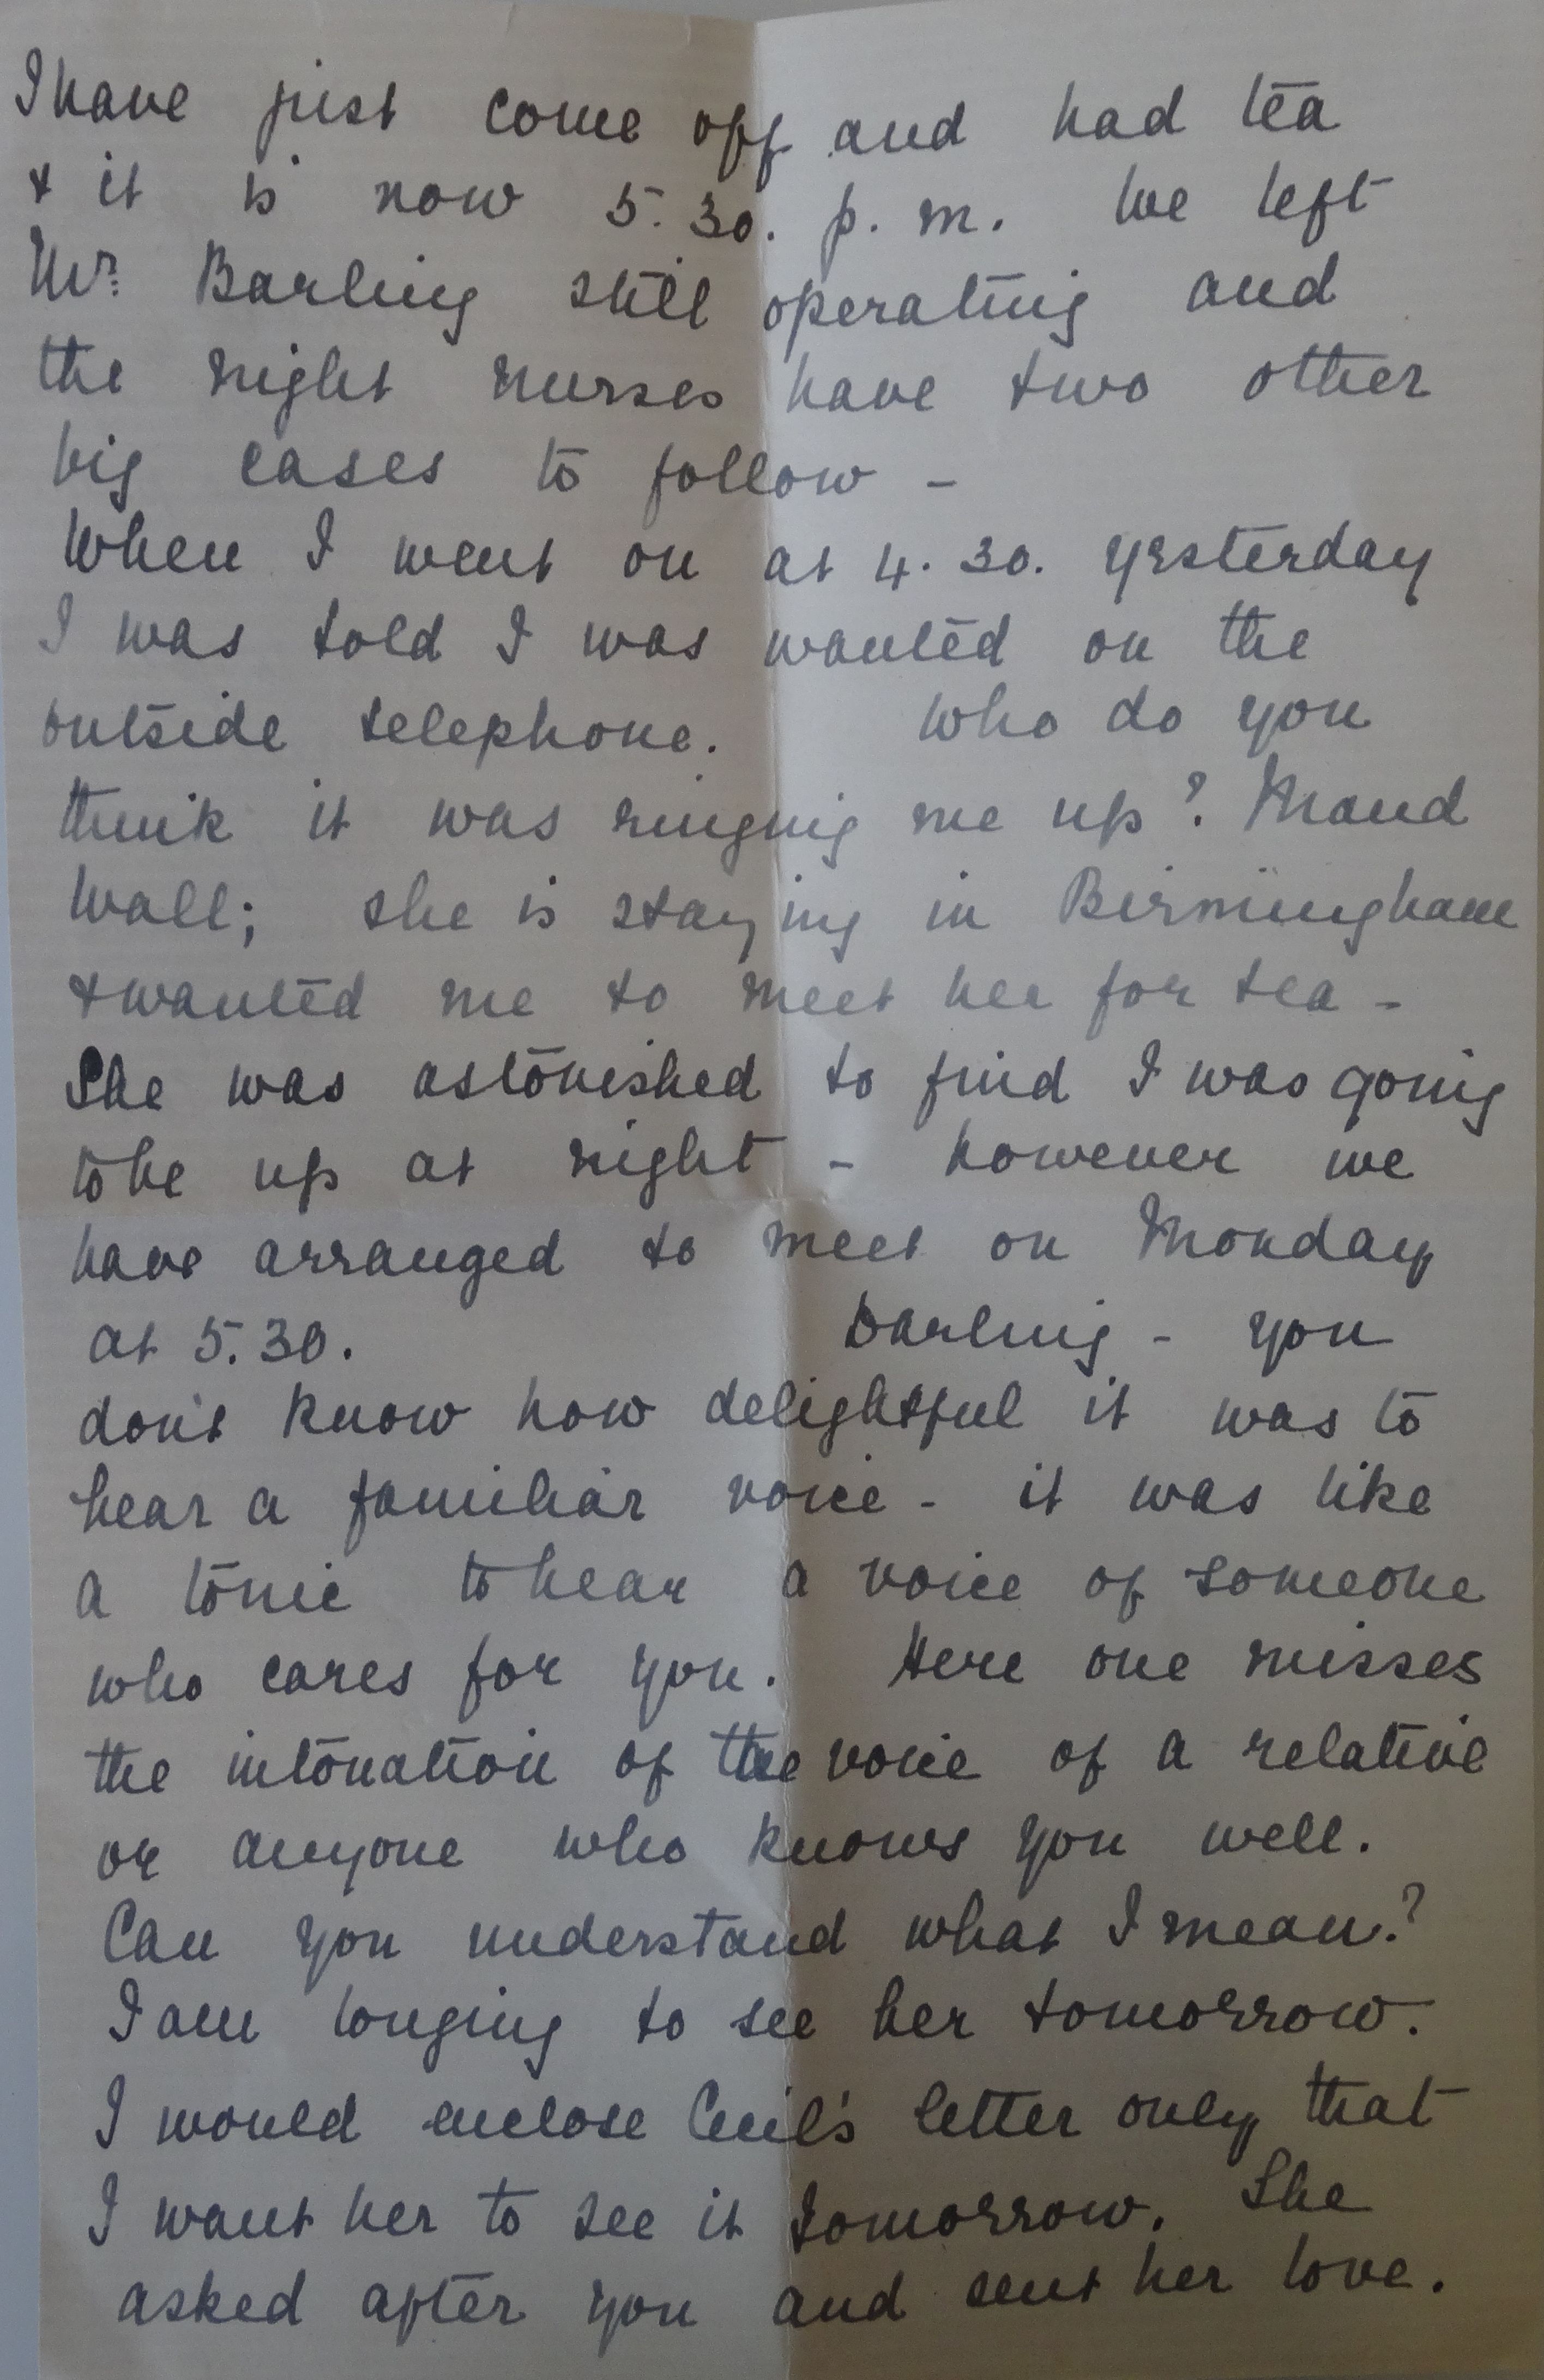 I have just come off and had tea
& it is now 5.30. p.m. We left
Mr. Barling still operating and
the night nurses have two other
big cases to follow -
When I went on at 4.30. yesterday
I was told I was wanted on the
outside telephone. Who do you
think it was ringing me up? Maud
Wall; she is staying in Birmingham
& wanted me to meet her for tea -
She was astonished to find I was going
to be up at night - however we
have arranged to meet on Monday
at 5.30. Darling - you
don't know how delightful it was to
hear a familiar voice - it was like
a tonic to hear a voice of someone
who cares for you. Here one misses
the intonation of the voice of a relative
or anyone who knows you well.
Can you understand what I mean?
I am longing to see her tomorrow.
I would enclose Cecil's letter only that
I want her to see it tomorrow. She
asked after you and sent her love.